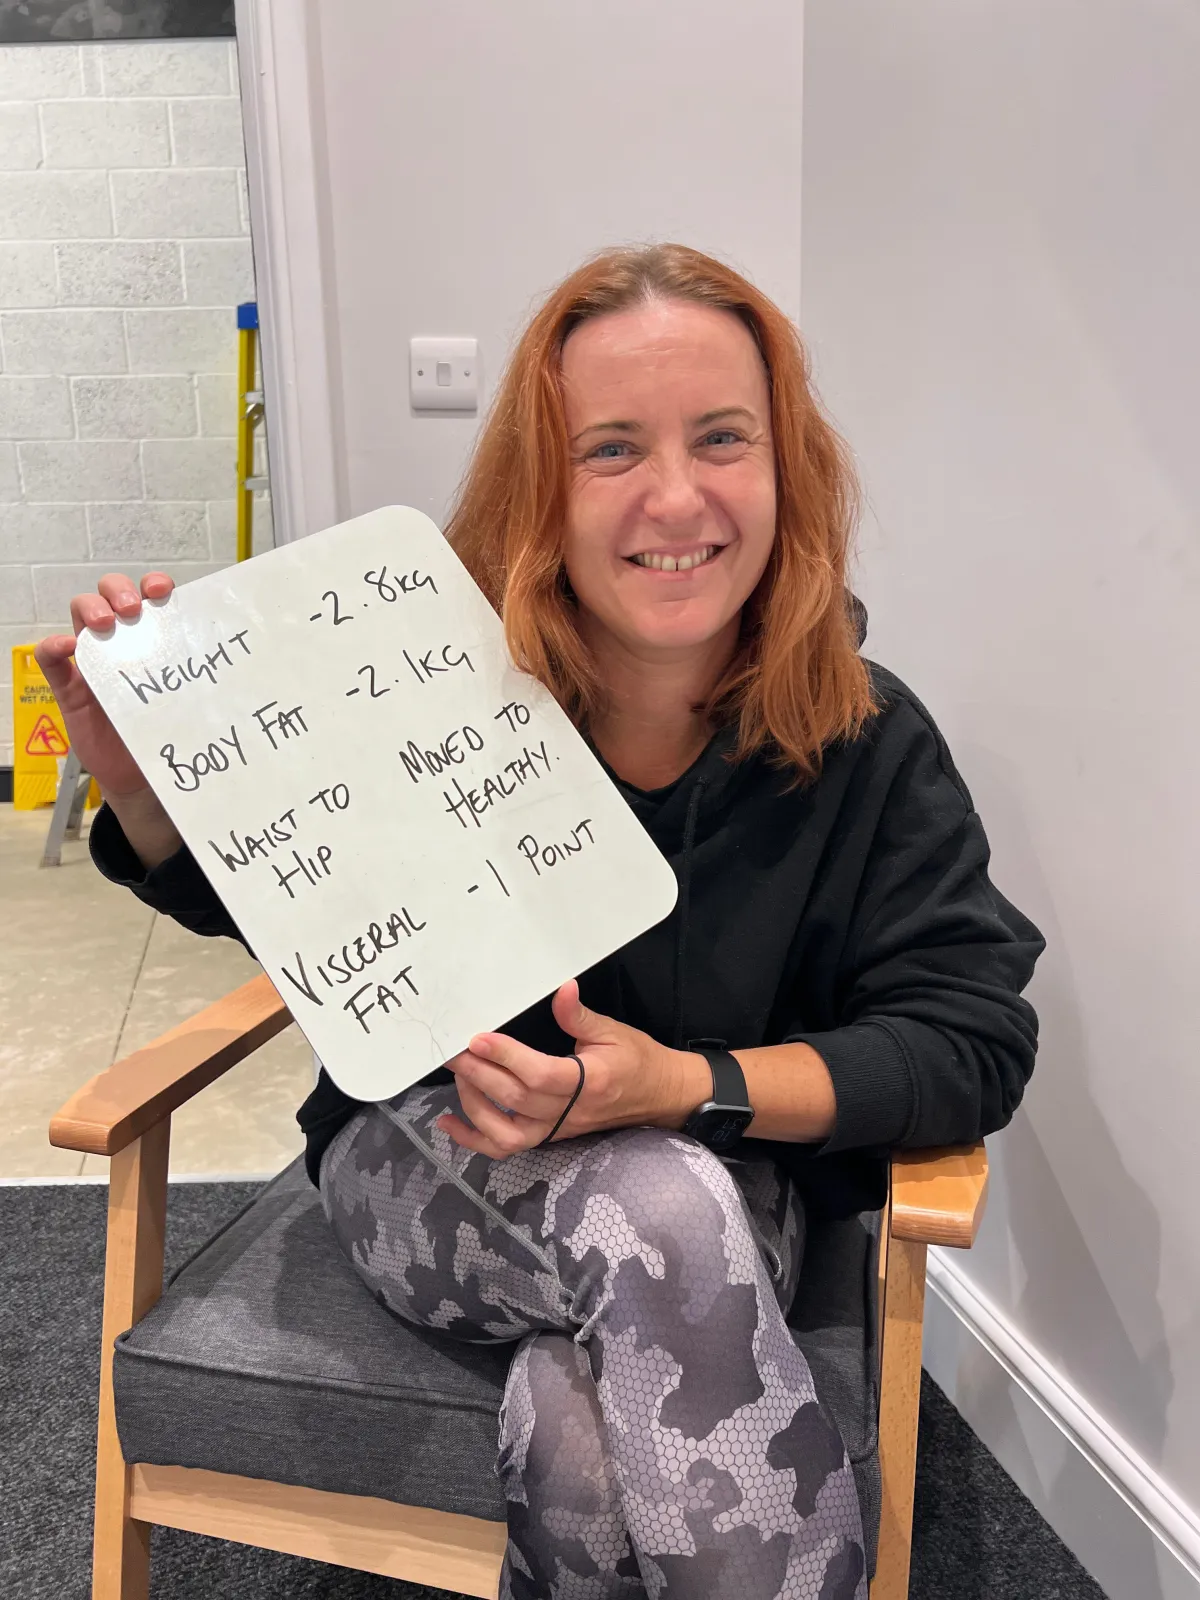 WEIGHT -2.8KG
BODY FAT -2.1KG
WAIST TO HIP MOVED TO HEALTHY.
VISCERAL FAT -1 POINT
CAUTI
WET FLO